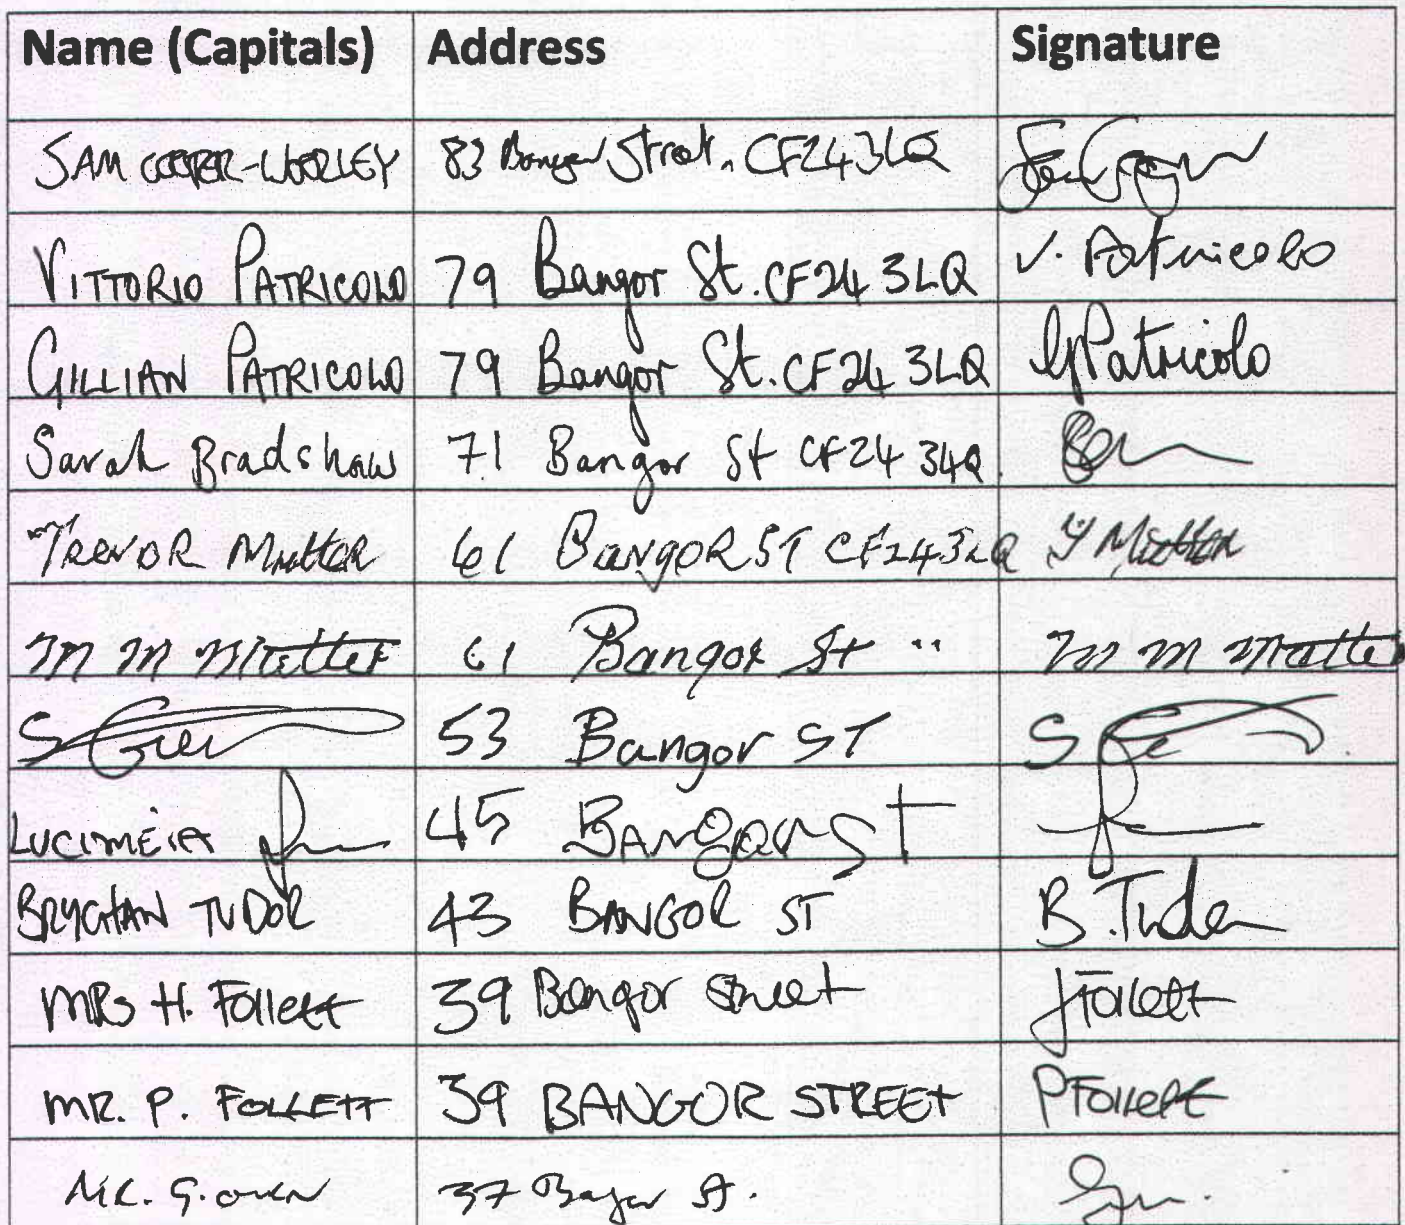 Name (Capitals) Address Signature
SAM COOPER-WORLEY 83 Bangor Street, CF24 3LQ
VITTORIO PATRICOLO 79 Bangor St. CF24 3LQ V. Patricolo
GILLIAN PATRICOLO 79 Bangor St. CF24 3LQ G Patricolo
Sarah Bradshaw 71 Bangor St CF24 3LQ
TREVOR Mutter 61 BangoR ST CF24 3LQ T Mutter
M M Mutter 61 Bangor St " M M Mutter
S 53 Bangor ST S
LUCIMEIA 45 BANGOR ST
BRYCHAN TUDOR 43 BANGOR ST B. Tudor
MRS H. Follett 39 Bangor Street Follett
MR. P. FOLLETT 39 BANGOR STREET P Follett
MR. G. OWEN 37 Bangor St.